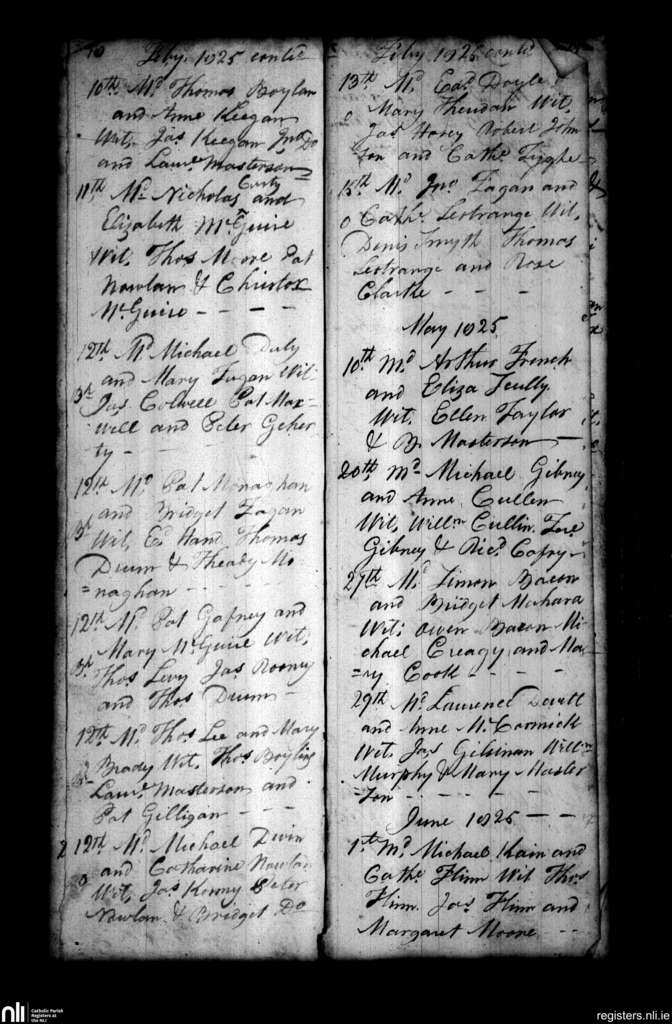 10 Feby. 1825 contd
10th Md Thomas Boylan
and Anne Keegan
Wit, Jas Keegan Jno Do
and Laurce Masterson
11th Md Nicholas Curty and
Elizabeth McGuire
Wit, Thos Moore Pat
Nowlan & Christox
McGuire - - - -
12th Md Michael Duly
and Mary Fagan Wit
Jas Colwell Pat Max=
well and Peter Geher
ty -
12th Md Pat Monaghan
and Bridget Fagan
Wit, Ed Hand Thomas
Drum & Theady Mo
=naghan - -
12th Md Pat Gafney and
Mary McGuire Wit,
Thos Levy Jas Rooney
and Thos Drum -
12th Md Thos Lee and Mary
Brady Wit, Thos Boyling
Laurce Masterson and
Pat Gilligan - - -
12th Md Michael Divin
and Catharine Nowlan
Wit, Jas Kenny Peter
Nowlan & Bridget Do
Feby. 1825 contd
13th Md Doyle
Mary Wit,
Jas Robert John
son and Cathe Tyghe
15th Md Jno Fagan and
Cathe Lestrange Wit,
Denis Smyth Thomas
Lestrange and Rose
Clarke - - -
May 1825
10th Md Arthur French
and Eliza Scully
Wit, Ellen Taylor
& B. Masterson -
20th Md Michael Gibney
and Anne Cullen
Wit, Willm Cullin
Gibney & Ricd Cafry -
27th Md Simon Bacon
and Bridget Mechara
Wit; Owen Bacon Mi
chael Creagy and Ma
=ry Cook - - - -
29th Md Laurence Devitt
and Anne McCormick
Wit, Jas Gilsinan Willm
Murphy & Mary Master
=son - - - -
June 1825 - -
1st Md Michael Kain and
Cathe Flinn Wit Thos
Flinn. Jas Flinn and
Margaret Moore - -
nli
Catholic Parish
Registers at
the NLI
registers.nli.ie